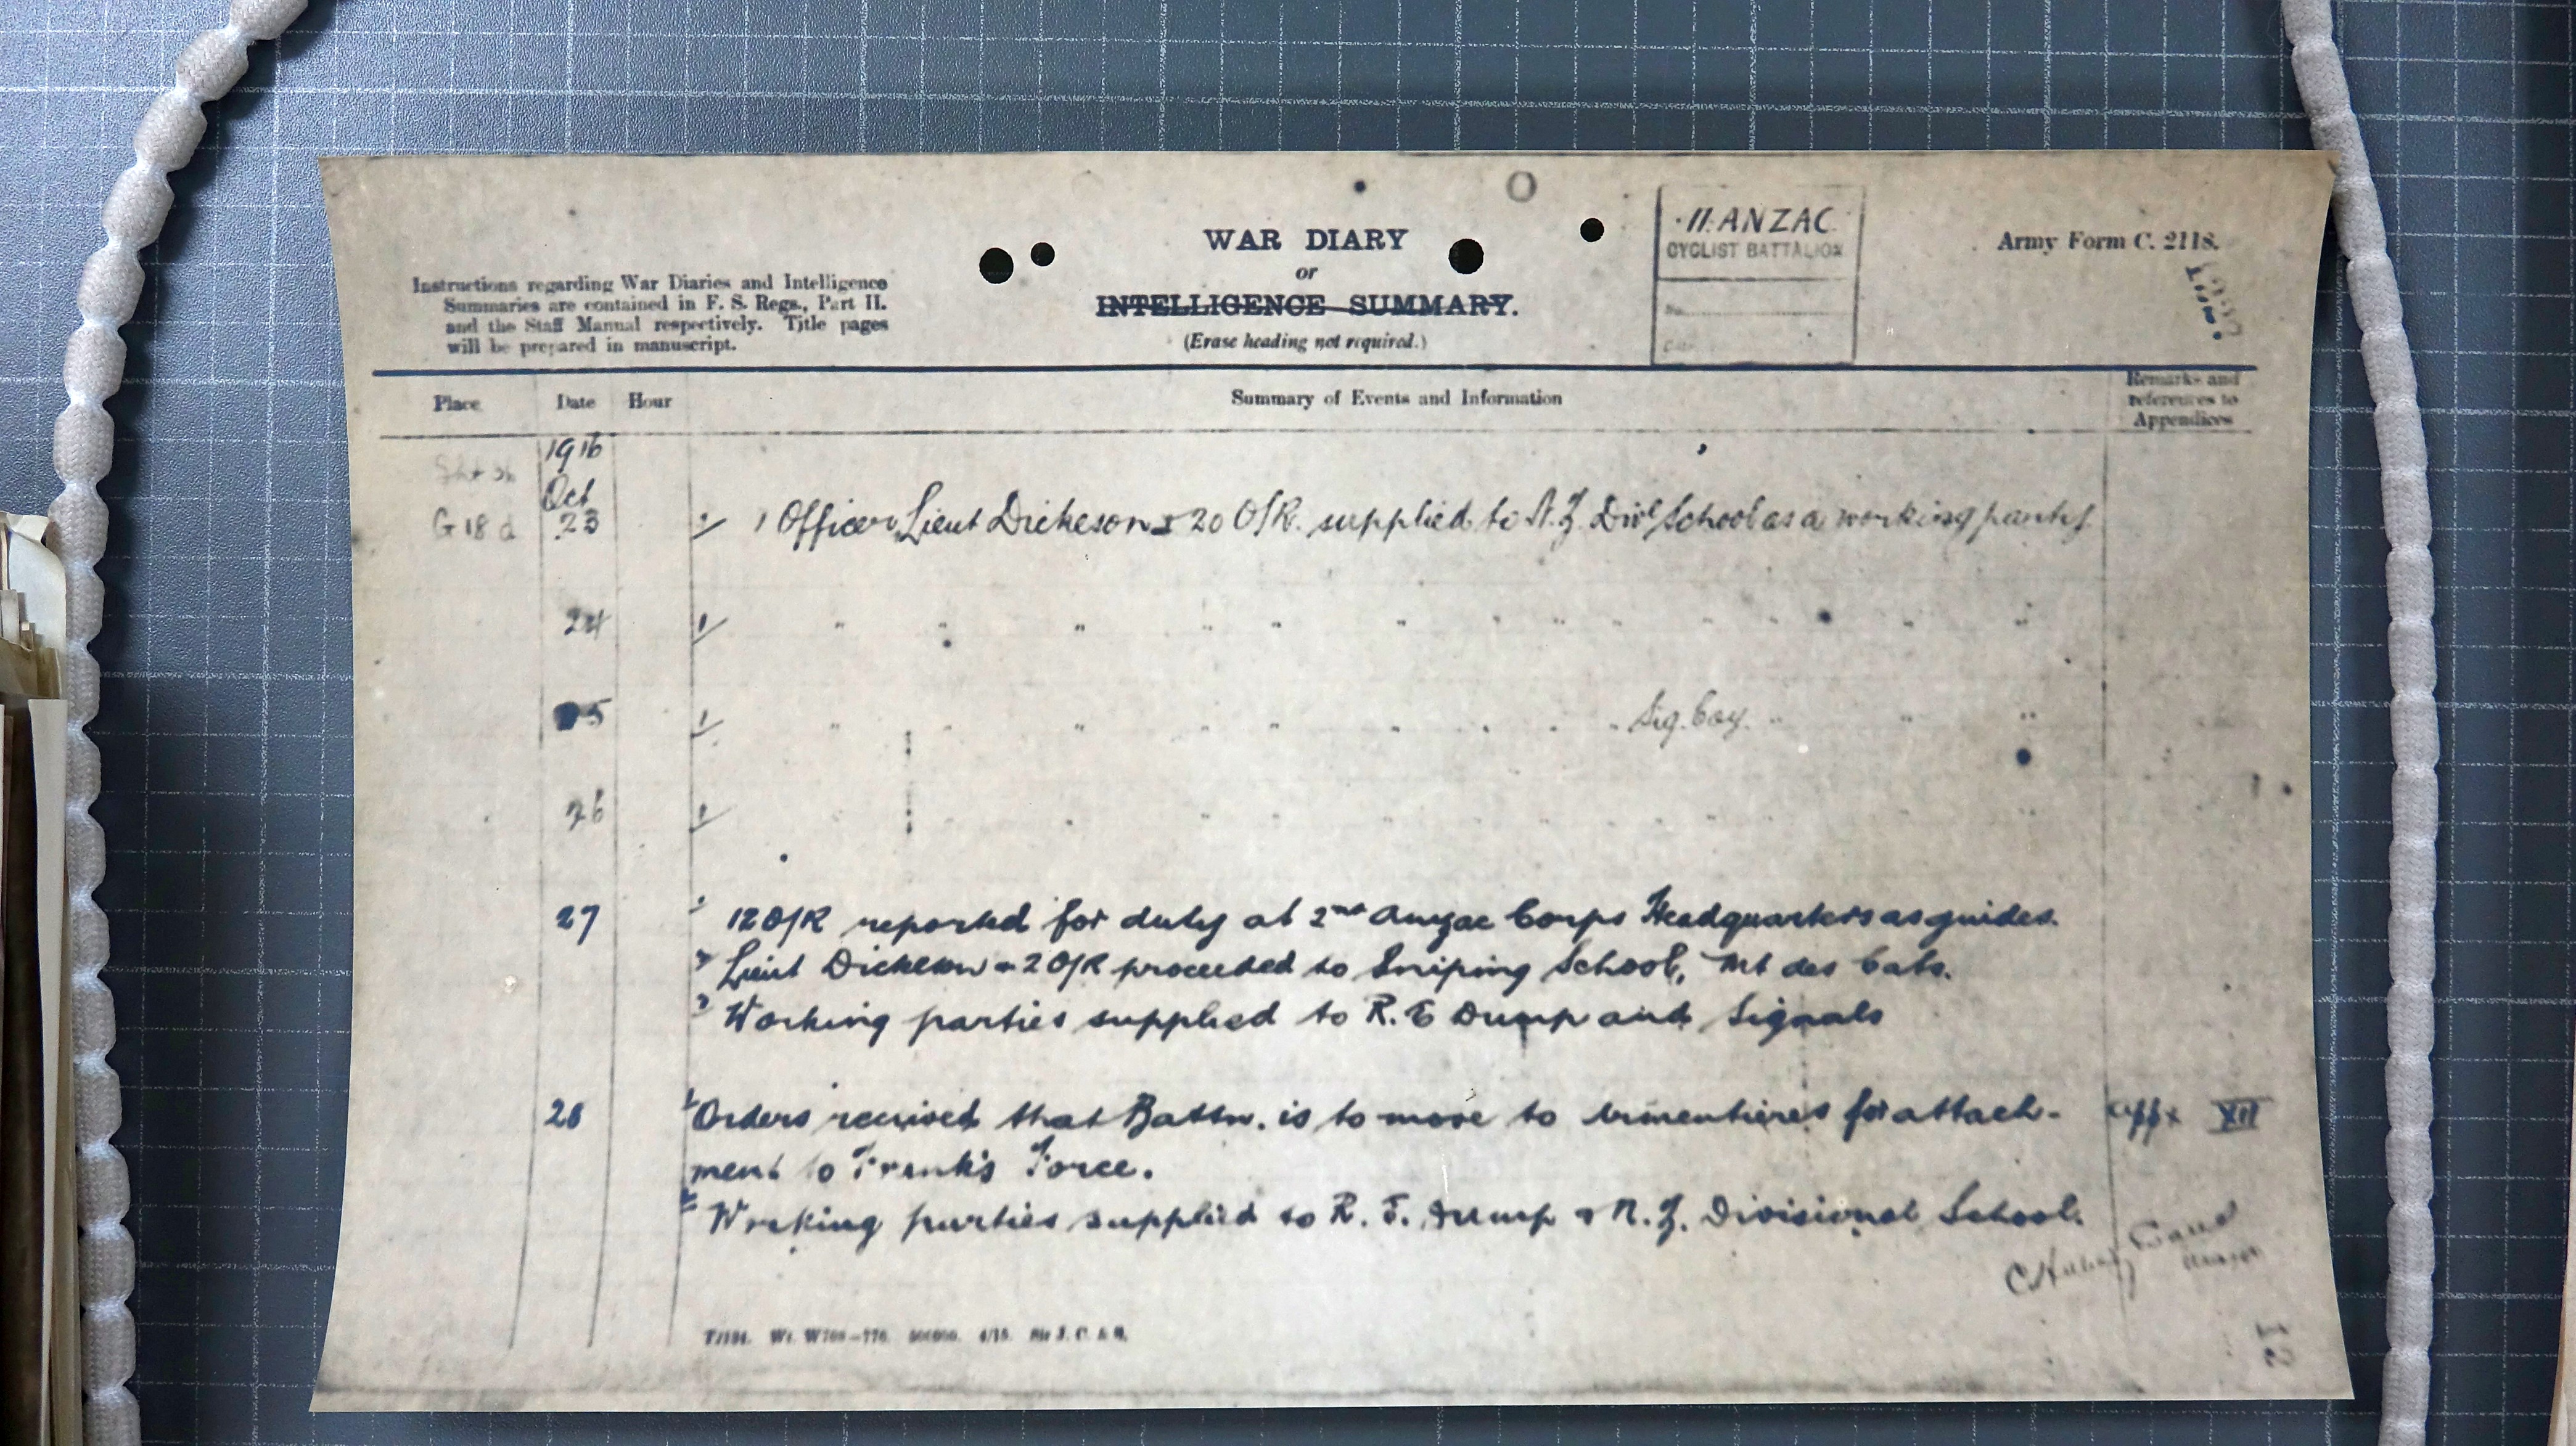 II ANZAC
CYCLIST BATTALION
Army Form C. 2118.
WAR DIARY
or
INTELLIGENCE SUMMARY.
(Erase heading not required.)
Instructions regarding War Diaries and Intelligence
Summaries are contained in F. S. Regs., Part II.
and the Staff Manual respectively. Title pages
will be prepared in manuscript.
Place Date Hour Summary of Events and Information Remarks and
references to
Appendices
1916
Oct
G 18 d 23 1/ 1 Officer Lieut Dickeson & 20 O/R. supplied to N.Z. Divl School as a working party
24 1/ " " " " " " " " " " " " "
25 1/ " " " " " " " " " Sig. Coy. " " "
26 1/ " " " " " " " " " " "
27 1 12 O/R reported for duty at 2nd Anzac Corps Headquarters as guides.
2 Lieut Dickeson & 2 O/R proceeded to Sniping School, Mt des Cats.
3 Working parties supplied to R.E Dump and Signals
28 1 Orders received that Battn. is to move to Armentieres for attach- appx XII
ment to Frank's Force.
2 Working parties supplied to R.E. Dump & N.Z. Divisional School.